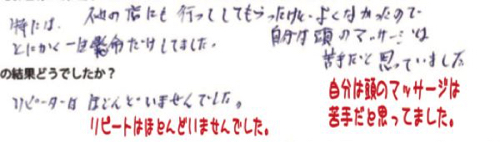 特には、他の店にも行ってしてもらったけど、よくなかったので
とにかく一生懸命だけしてました。
自分は頭のマッサージは
苦手だと思っていました
の結果どうでしたか？
リピーターは ほとんどいませんでした。
リピートはほとんどいませんでした。
自分は頭のマッサージは
苦手だと思ってました。